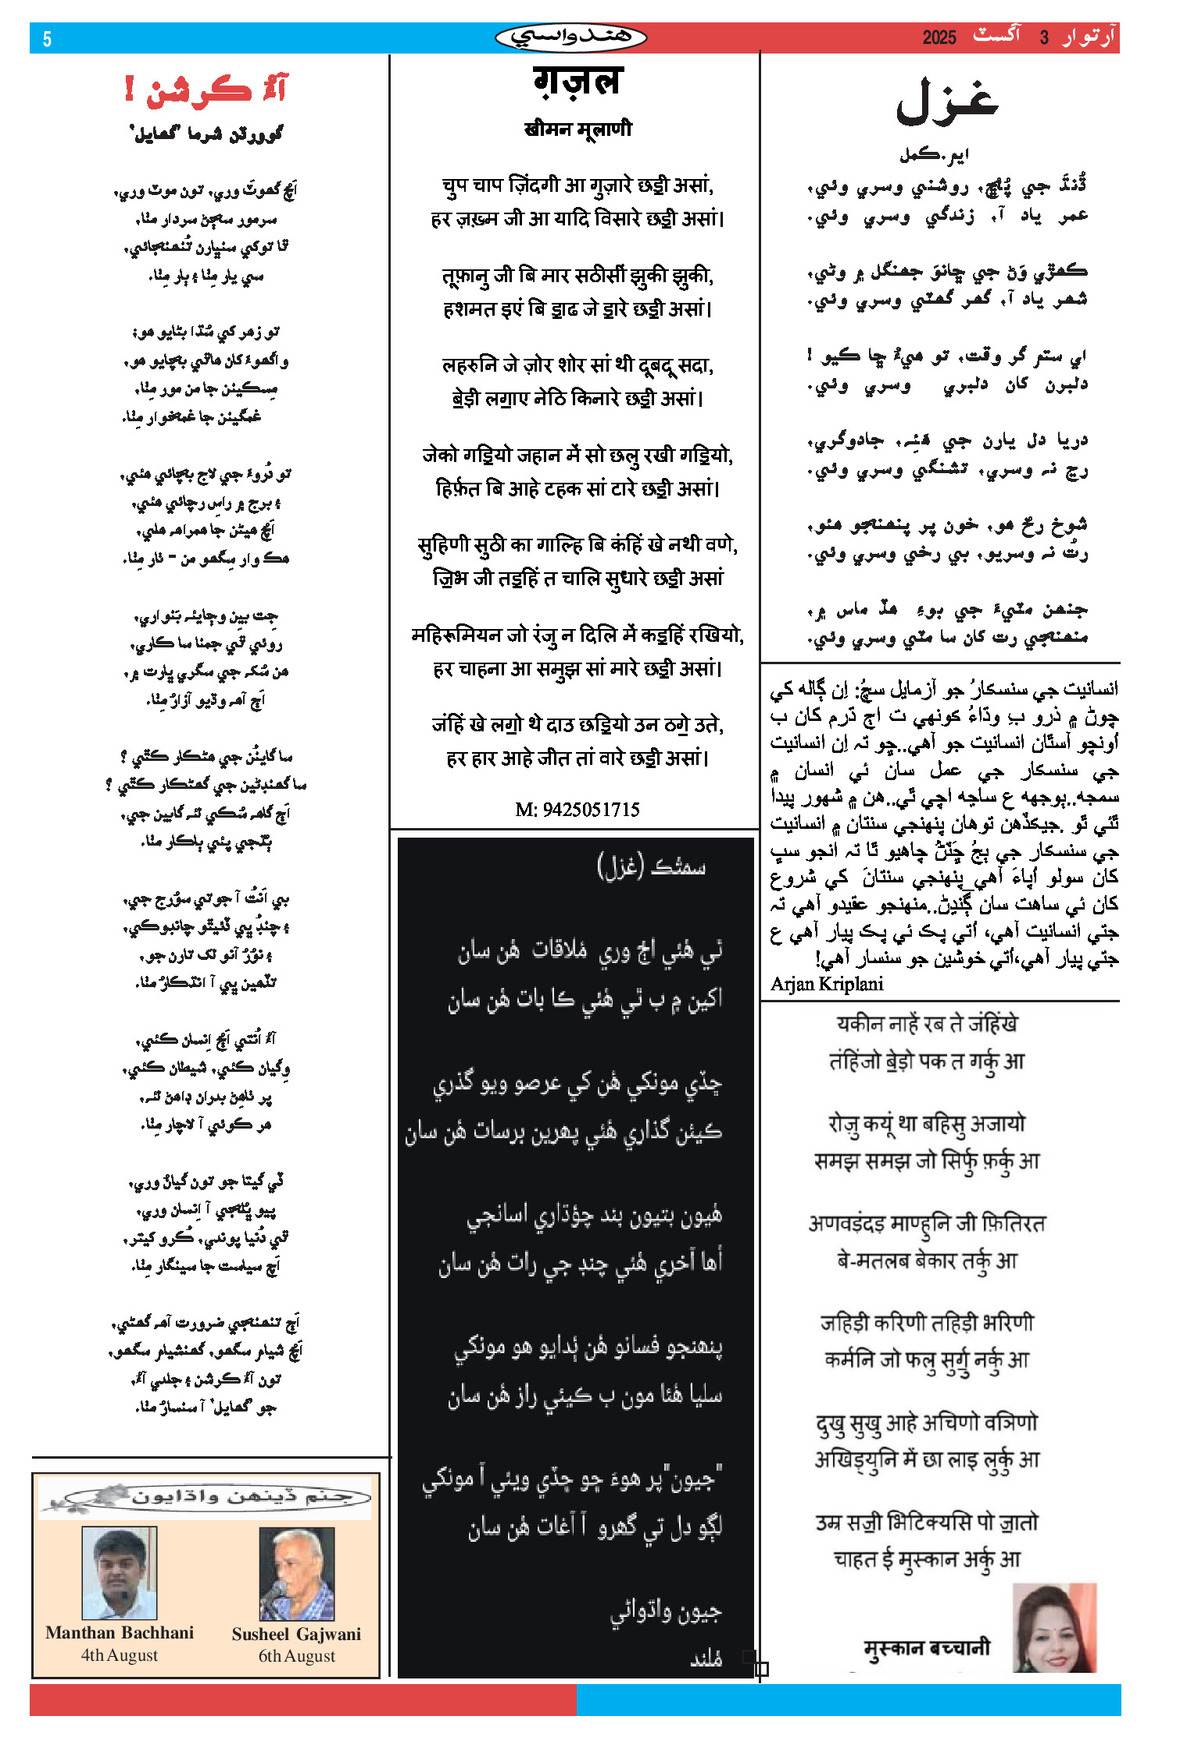 5
هندواسي
آرتوار 3 آگسٽ 2025
غزل
ايم.ڪمل
ڌُنڌَ جي پُڇ، روشني وسري وئي،
عمر ياد آ، زندگي وسري وئي.
ڪهڙي وَڻ جي ڇانوَ جهنگل ۾ وڻي،
شهر ياد آ، گهر گهٽي وسري وئي.
اي ستم گر وقت، تو هيءُ ڇا ڪيو !
دلبرن کان دلبري وسري وئي.
دريا دل يارن جي هَئِہ، جادوگري،
رڃ نہ وسري، تشنگي وسري وئي.
شوخ رخ هو، خون پر پنهنجو هئو،
رتُ نہ وسريو، بي رخي وسري وئي.
جنهن مٽيءَ جي بوءِ هڏ ماس ۾،
منهنجي رت کان سا مٽي وسري وئي.
انسانيت جي سنسڪارُ جو آزمايل سچُ: اِن ڳالهه کي
چوڻ ۾ ذرو بہ وڌاءُ ڪونهي ت اڄ ڌرم کان ب
اُونچو آستان انسانيت جو آهي..ڇو تہ اِن انسانيت
جي سنسڪار جي عمل سان ئي انسان ۾
سمجهه..ٻوجهه ع ساڃه اچي ٿي..هن ۾ شهور پيدا
ٿئي ٿو .جيڪڏهن توهان پنهنجي سنتان ۾ انسانيت
جي سنسڪار جي ٻجُ ڇَٽڻُ چاهيو ٿا تہ انجو سڀ
کان سولو اُپاءَ آهي پنهنجي سنتانَ کي شروع
کان ئي ساهت سان ڳنڍڻ..منهنجو عقيدو آهي تہ
جتي انسانيت آهي، اُتي پڪ ئي پڪ پيار آهي ع
جتي پيار آهي،اُتي خوشين جو سنسار آهي!
Arjan Kriplani
यकीन नाहें रब ते जंहिंखे
तंहिंजो ॿेड़ो पक त गर्कु आ
रोज़ु कयूं था बहिसु अजायो
समझ समझ जो सिर्फु फ़र्कु आ
अणवड़ंदड़ माण्हुनि जी फ़ितिरत
बे-मतलब बेकार तर्कु आ
जहिड़ी करिणी तहिड़ी भरिणी
कर्मनि जो फलु सुर्गु नर्कु आ
दुखु सुखु आहे अचिणो वञिणो
अखिड़्युनि में छा लाइ लुर्कु आ
उम्र सॼी भिटिक्यसि पो ॼातो
चाहत ई मुस्कान अर्कु आ
मुस्कान बच्चानी
ग़ज़ल
खीमन मूलाणी
चुप चाप ज़िंदगी आ गुज़ारे छॾी असां,
हर ज़ख़्म जी आ यादि विसारे छॾी असां।
तूफ़ानु जी बि मार सठीसीं झुकी झुकी,
हशमत इएं बि ॾाढ जे ॾारे छॾी असां।
लहरुनि जे ज़ोर शोर सां थी दूबदू सदा,
ॿेड़ी लॻाए नेठि किनारे छॾी असां।
जेको गॾियो जहान में सो छलु रखी गॾियो,
हिर्फ़त बि आहे टहक सां टारे छॾी असां।
सुहिणी सुठी का गाल्हि बि कंहिं खे नथी वणे,
ॼिभ जी तॾहिं त चालि सुधारे छॾी असां
महिरूमियन जो रंजु न दिलि में कॾहिं रखियो,
हर चाहना आ समुझ सां मारे छॾी असां।
जंहिं खे लॻो थे दाउ छॾियो उन ठॻे उते,
हर हार आहे जीत तां वारे छॾी असां।
M: 9425051715
سمٿڪ (غزل)
ٿي هُئي اڄ وري مُلاقات هُن سان
اکين ۾ ب ٿي هُئي ڪا بات هُن سان
ڇڏي مونکي هُن کي عرصو ويو گذري
ڪيئن گذاري هُئي پهرين برسات هُن سان
هُيون بتيون بند چؤڌاري اسانجي
اُها آخري هُئي چنڊ جي رات هُن سان
پنهنجو فسانو هُن ٻُڌايو هو مونکي
سليا هُئا مون ب ڪيئي راز هُن سان
"جيون"پر هوءَ ڇو ڇڏي ويئي آ مونکي
لڳو دل تي گهرو آ آغات هُن سان
جيون واڌواڻي
مُلند
آءُ ڪرشن !
گووردّن شرما ’گھايل‘
اَڄ گھوٽَ وري، تون موٽ وري،
سرمور سڄڻ سردار مٺا،
ٿا توکي سنڀارن تُنهنجائي،
سي يار مِٺا ۽ ٻار مِٺا.
تو زهر کي سُڌا بڻايو هو؛
واگھوءَ کان هاٿي بچايو هو،
مِسڪينن جا من مور مِٺا،
غمگينن جا غمخوار مِٺا.
تو دُروءَ جي لاج بچائي هئي،
۽ برج ۾ راس رچائي هئي،
اَڄ هيڻن جا همراهہ هلي،
هڪ وار سِگهو من - ٺار مِٺا.
جِت ٻين وڄايئہ بَنواري،
روئي ٿي جمنا سا ڪاري،
هن سُکہ جي سگري ڀارت ۾،
اَڄ آهہ وڏيو آزارُ مِٺا.
سا گاينُن جي هڻڪار ڪٿي ؟
سا گھنڊڻين جي گھڻڪار ڪٿي ؟
اَڄ گاهہ سُڪي ٿئہ گابين جي،
ڀڻجي پئي ٻاڪار مٺا.
بي اَنتُ آ جوتي سوُرج جي،
۽ چنڊُ ڀي ڏئيٿو چانڊوڪي،
۽ نوُرُ آڻو لک تارن جو،
تڏهين ڀي آ انڌڪارُ مٺا.
آءُ اُٿتي اَڄ اِنسان ڪٿي،
وِگيان ڪٿي، شيطان ڪٿي،
پر ٺاهِڻ بدران ڊاهڻ ٿئہ،
هر ڪوئي آ لاچار مِٺا.
ڏي گيتا جو تون گيانُ وري،
پيو ڀُلجي آ اِنسان وري،
ٿي دُنيا پوندي، ڪُرو کيتر،
اَڄ سياست جا سينگار مِٺا.
اَڄ تنهنجي ضرورت آهہ گھڻي،
اَڄ شيام سگهو، گھنشيام سگهو،
تون آءُ ڪرشن ۽ جلدي آءُ،
جو ’گھايل‘ آ سنسارُ مٺا.
جنم ڏينهن واڌايون
Manthan Bachhani
4th August
Susheel Gajwani
6th August